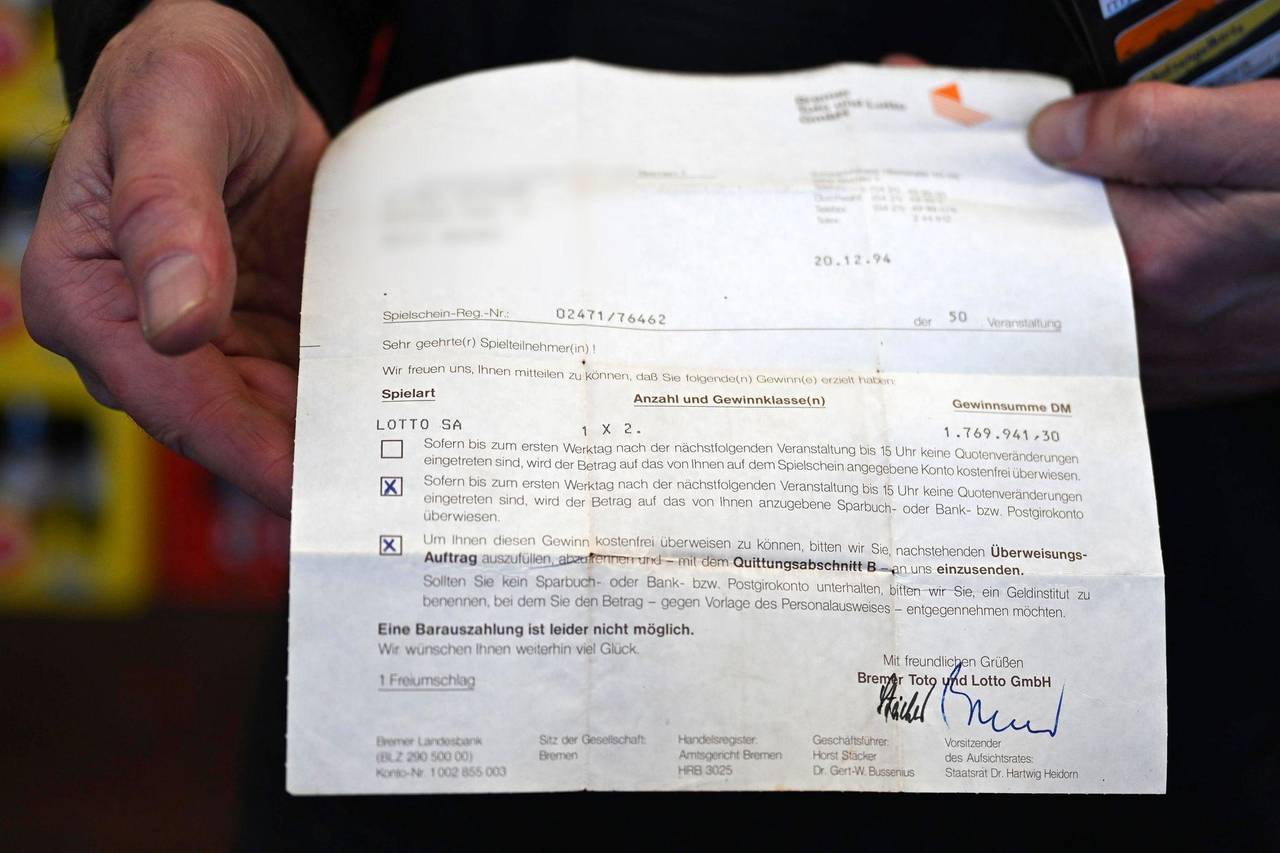 Bremer
Toto und Lotto
GmbH
20.12.94
Spielschein-Reg.-Nr.: 02471/76462 der 50 Veranstaltung
Sehr geehrte(r) Spielteilnehmer(in) !
Wir freuen uns, Ihnen mitteilen zu können, daß Sie folgende(n) Gewinn(e) erzielt haben:
Spielart Anzahl und Gewinnklasse(n) Gewinnsumme DM
LOTTO SA 1 X 2. 1.769.941,30
Sofern bis zum ersten Werktag nach der nächstfolgenden Veranstaltung bis 15 Uhr keine Quotenveränderungen
eingetreten sind, wird der Betrag auf das von Ihnen auf dem Spielschein angegebene Konto kostenfrei überwiesen.
X Sofern bis zum ersten Werktag nach der nächstfolgenden Veranstaltung bis 15 Uhr keine Quotenveränderungen
eingetreten sind, wird der Betrag auf das von Ihnen anzugebene Sparbuch- oder Bank- bzw. Postgirokonto
überwiesen.
X Um Ihnen diesen Gewinn kostenfrei überweisen zu können, bitten wir Sie, nachstehenden Überweisungs-
Auftrag auszufüllen, abzutrennen und – mit dem Quittungsabschnitt B – an uns einzusenden.
Sollten Sie kein Sparbuch- oder Bank- bzw. Postgirokonto unterhalten, bitten wir Sie, ein Geldinstitut zu
benennen, bei dem Sie den Betrag – gegen Vorlage des Personalausweises – entgegennehmen möchten.
Eine Barauszahlung ist leider nicht möglich.
Wir wünschen Ihnen weiterhin viel Glück.
Mit freundlichen Grüßen
1 Freiumschlag Bremer Toto und Lotto GmbH
Bremer Landesbank Sitz der Gesellschaft: Handelsregister: Geschäftsführer: Vorsitzender
(BLZ 290 500 00) Bremen Amtsgericht Bremen Horst Stäcker des Aufsichtsrates:
Konto-Nr. 1 002 855 003 HRB 3025 Dr. Gert-W. Bussenius Staatsrat Dr. Hartwig Heidorn